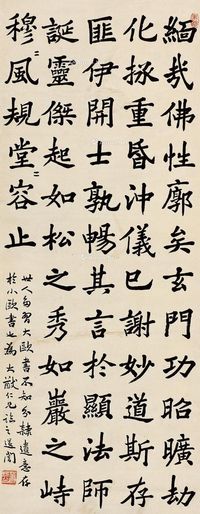 緬哉佛性廓矣玄門功昭曠劫
化拯重昏沖儀已謝妙道斯存
匪伊開士孰暢其言於顯法師
誕靈傑起如松之秀如巖之峙
穆〻風規堂〻容止
世人每習大歐書不知分隸遺意存
於小歐書也為大猷仁兄臨之